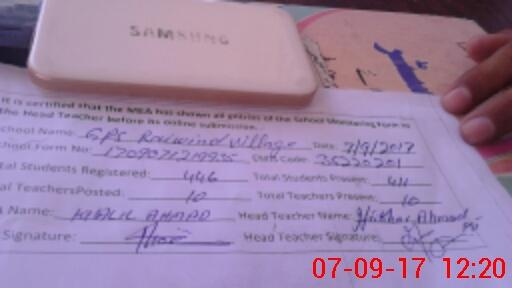 SAMSUNG
It is certified that the MEA has shown all entries of the School Monitoring Form to
the Head Teacher before its online submission.
School Name: GPS Raiwind Village Date: 7/9/2017
School Form No: EMIS Code: 35220201
Total Students Registered: 446 Total Students Present: 411
Total Teachers Posted: 10 Total Teachers Present: 10
A Name: KHALIL AHMAD Head Teacher Name: Iftikhar Ahmad
Signature: Head Teacher Signature:
07-09-17 12:20